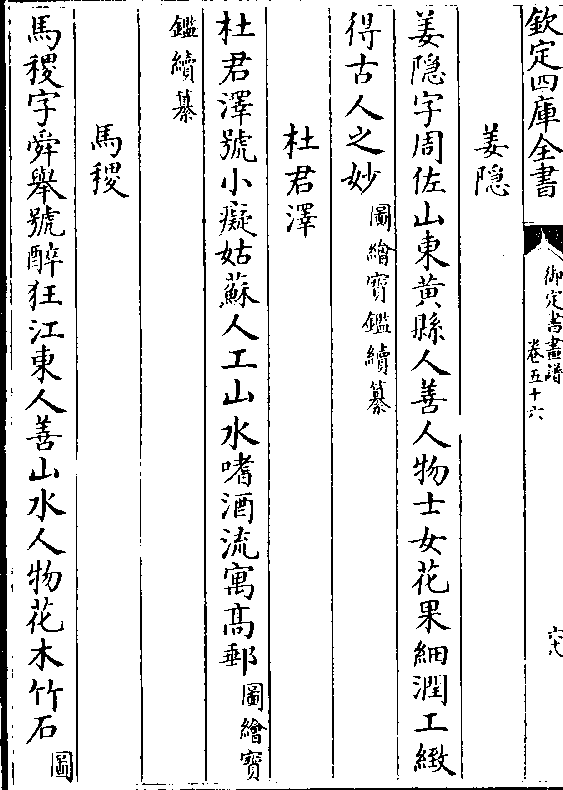 欽定四庫全書
御定書畫譜
卷五十六
六十八
姜隠
姜隠字周佐山東黄縣人善人物士女花果細潤工緻
得古人之妙圖繪寳鑑續纂
杜君澤
杜君澤號小癡姑蘇人工山水嗜酒流寓髙郵圖繪寳
鑑續纂
馬稷
馬稷字舜舉號醉狂江東人善山水人物花木竹石圖